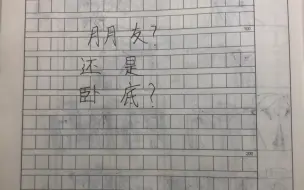 朋友?
还是
卧底?